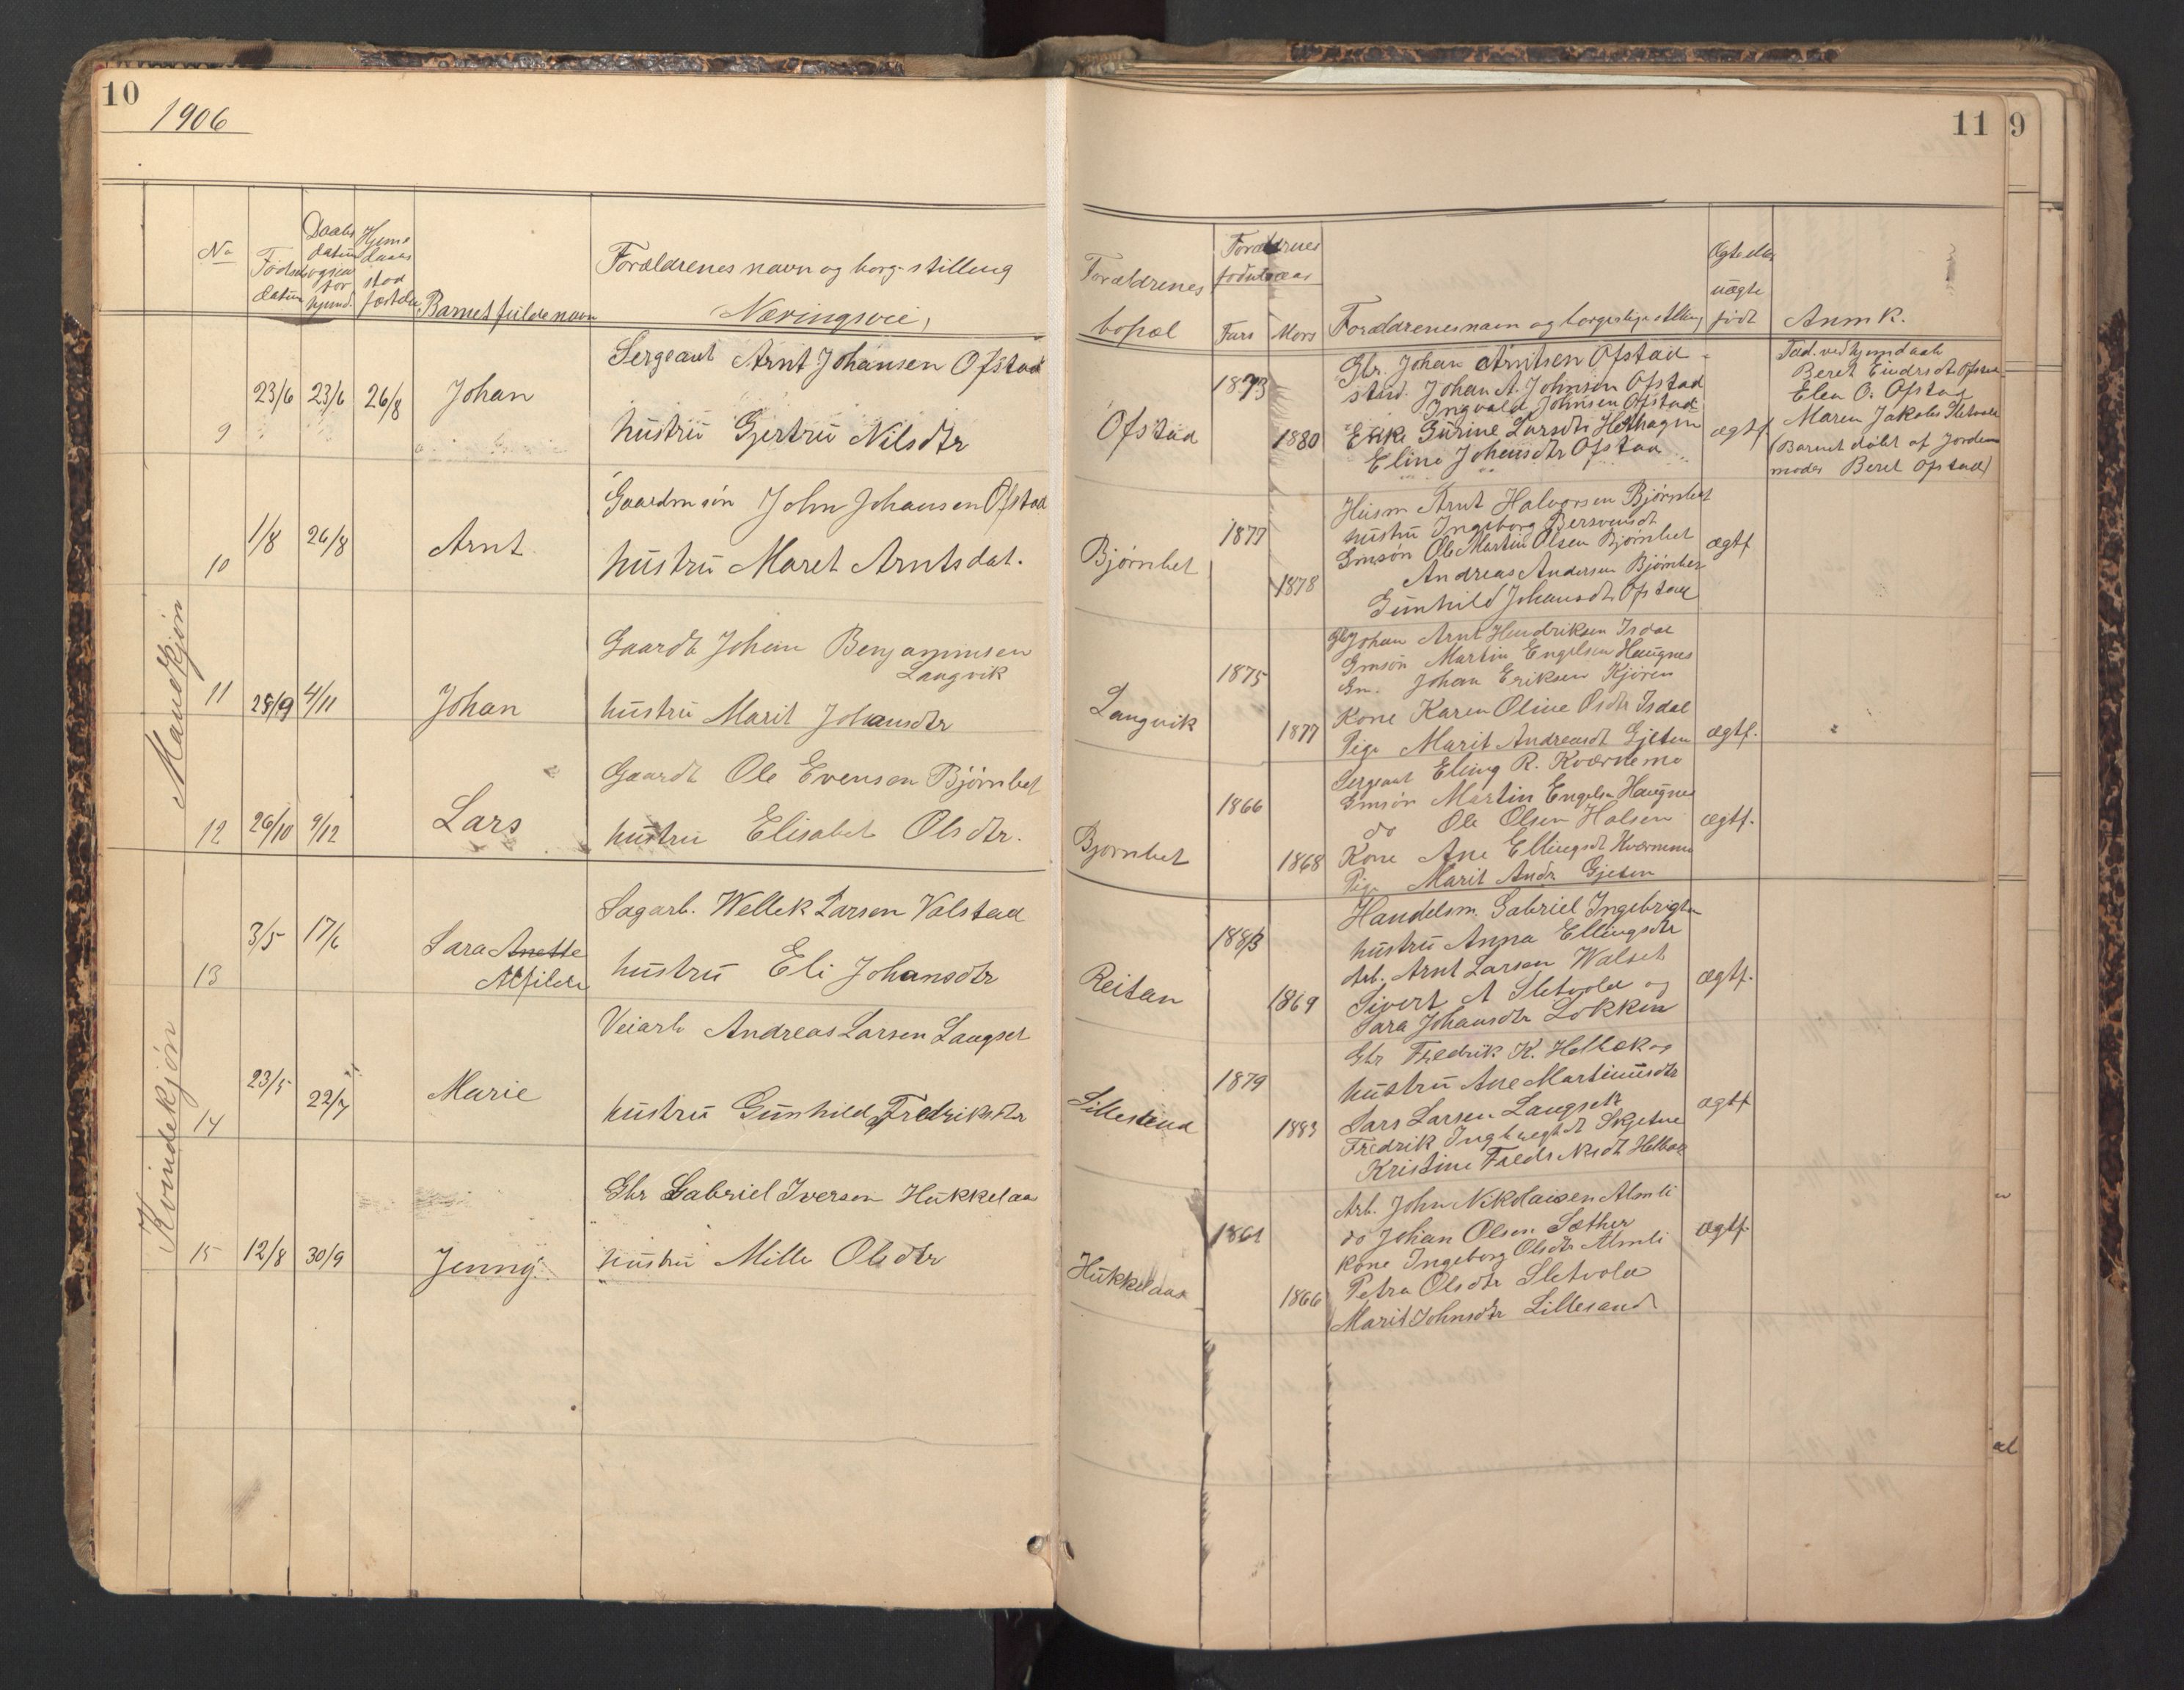 10
1906
No
Fødsels datum
Daabs datum og sen for hjemd.
Hjeme daabs stad fæstelse
Barnets fulde navn
Forældrenes navn og borg. stilling
Næringsvei,
Mandkjøn
9 23/6 23/6 26/8 Johan
Sergeant Arnt Johansen Ofstad
hustru Gjertru Nilsdtr
10 1/8 26/8 Arnt
Gaardmsøn John Johansen Ofstad
hustru Maret Arntsdat.
11 28/9 4/11 Johan
Gaardb Johan Benjaminsen
Langvik
hustru Marit Johansdtr
12 26/10 9/12 Lars
Gaardb Ole Evensen Bjørnbet
hustru Elisabet Olsdtr.
Kvindekjøn
13 3/5 17/6 Sara Anette
Alfilde
Sagarb. Wellek Larsen Valstad
hustru Eli Johansdtr
14 23/5 22/7 Marie
Veiarb Andreas Larsen Langset
hustru Gunhild Fredriksdtr
15 12/8 30/9 Jenny
Gbr Gabriel Iversen Hukkelaas
hustru Mille Olsdtr
11
9
Forældrenes bopæl
Forældrenes fødselsaar
Fars Mors
Forældrenes navn og borgerlige stilling
Ægte eller uægte født
Anmk.
Ofstad 1873 1880
Gbr. Johan Arntsen Ofstad
stud. Johan A. Johnsen Ofstad
Ingvald Johnsen Ofstad
Enke Gurine Larsdtr Hethagen
Eline Johansdtr Ofstad
ægtf.
Fad. ved hjemdaab
Beret Eindrsdtr Ofstad
Elen O. Ofstad
Maren Jakobs Sletvold
(Barnet døbt af Jordem
moder Beret Ofstad)
Bjørnbet 1877 1878
Husm Arnt Halvorsen Bjørnbet
hustru Ingeborg Bersvensdt
Gmsøn Ole Martin Olsen Bjørnbet
Andreas Andersen Bjørnbet
Gunhild Johansdtr Ofstad
ægtf
Langvik 1875 1877
Gbr Johan Arnt Hendriksen Isdal
Gmsøn Martin Engelsen Haugnes
Gm. Johan Eriksen Kjøren
Kone Karen Oline Olsdtr Isdal
Pige Marit Andreasdt Gjeten
ægtf.
Bjørnbet 1866 1868
Sergeant Eling R. Kværnemo
Gmsøn Martin Engelsen Haugnes
do Ole Olsen Holsen
Kone Ane Ellingsdt Kværnemo
Pige Marit Andr Gjeten
ægtf.
Reitan 1883 1869
Handelsm. Gabriel Ingebrigtsen
hustru Anna Ellingsdtr
Arb. Arnt Larsen Walset
Sivert A Sletvold og
Sara Johansdtr Løkken
ægtf.
Lillesand 1879 1883
Gbr Fredrik K. Helbak og
hustru Ane Martinusdtr
Lars Larsen Langset
Fredrik
Kristine Fredriksdt Helbak
ægtf
Hukkelaas 1861 1866
Arb. John Nikolaisen Almli
do Johan Olsen Sæther
Kone Ingeborg Olsdtr Almli
Petra Olsdtr Sletvold
Marit Johnsdtr Lillesand
ægtf.